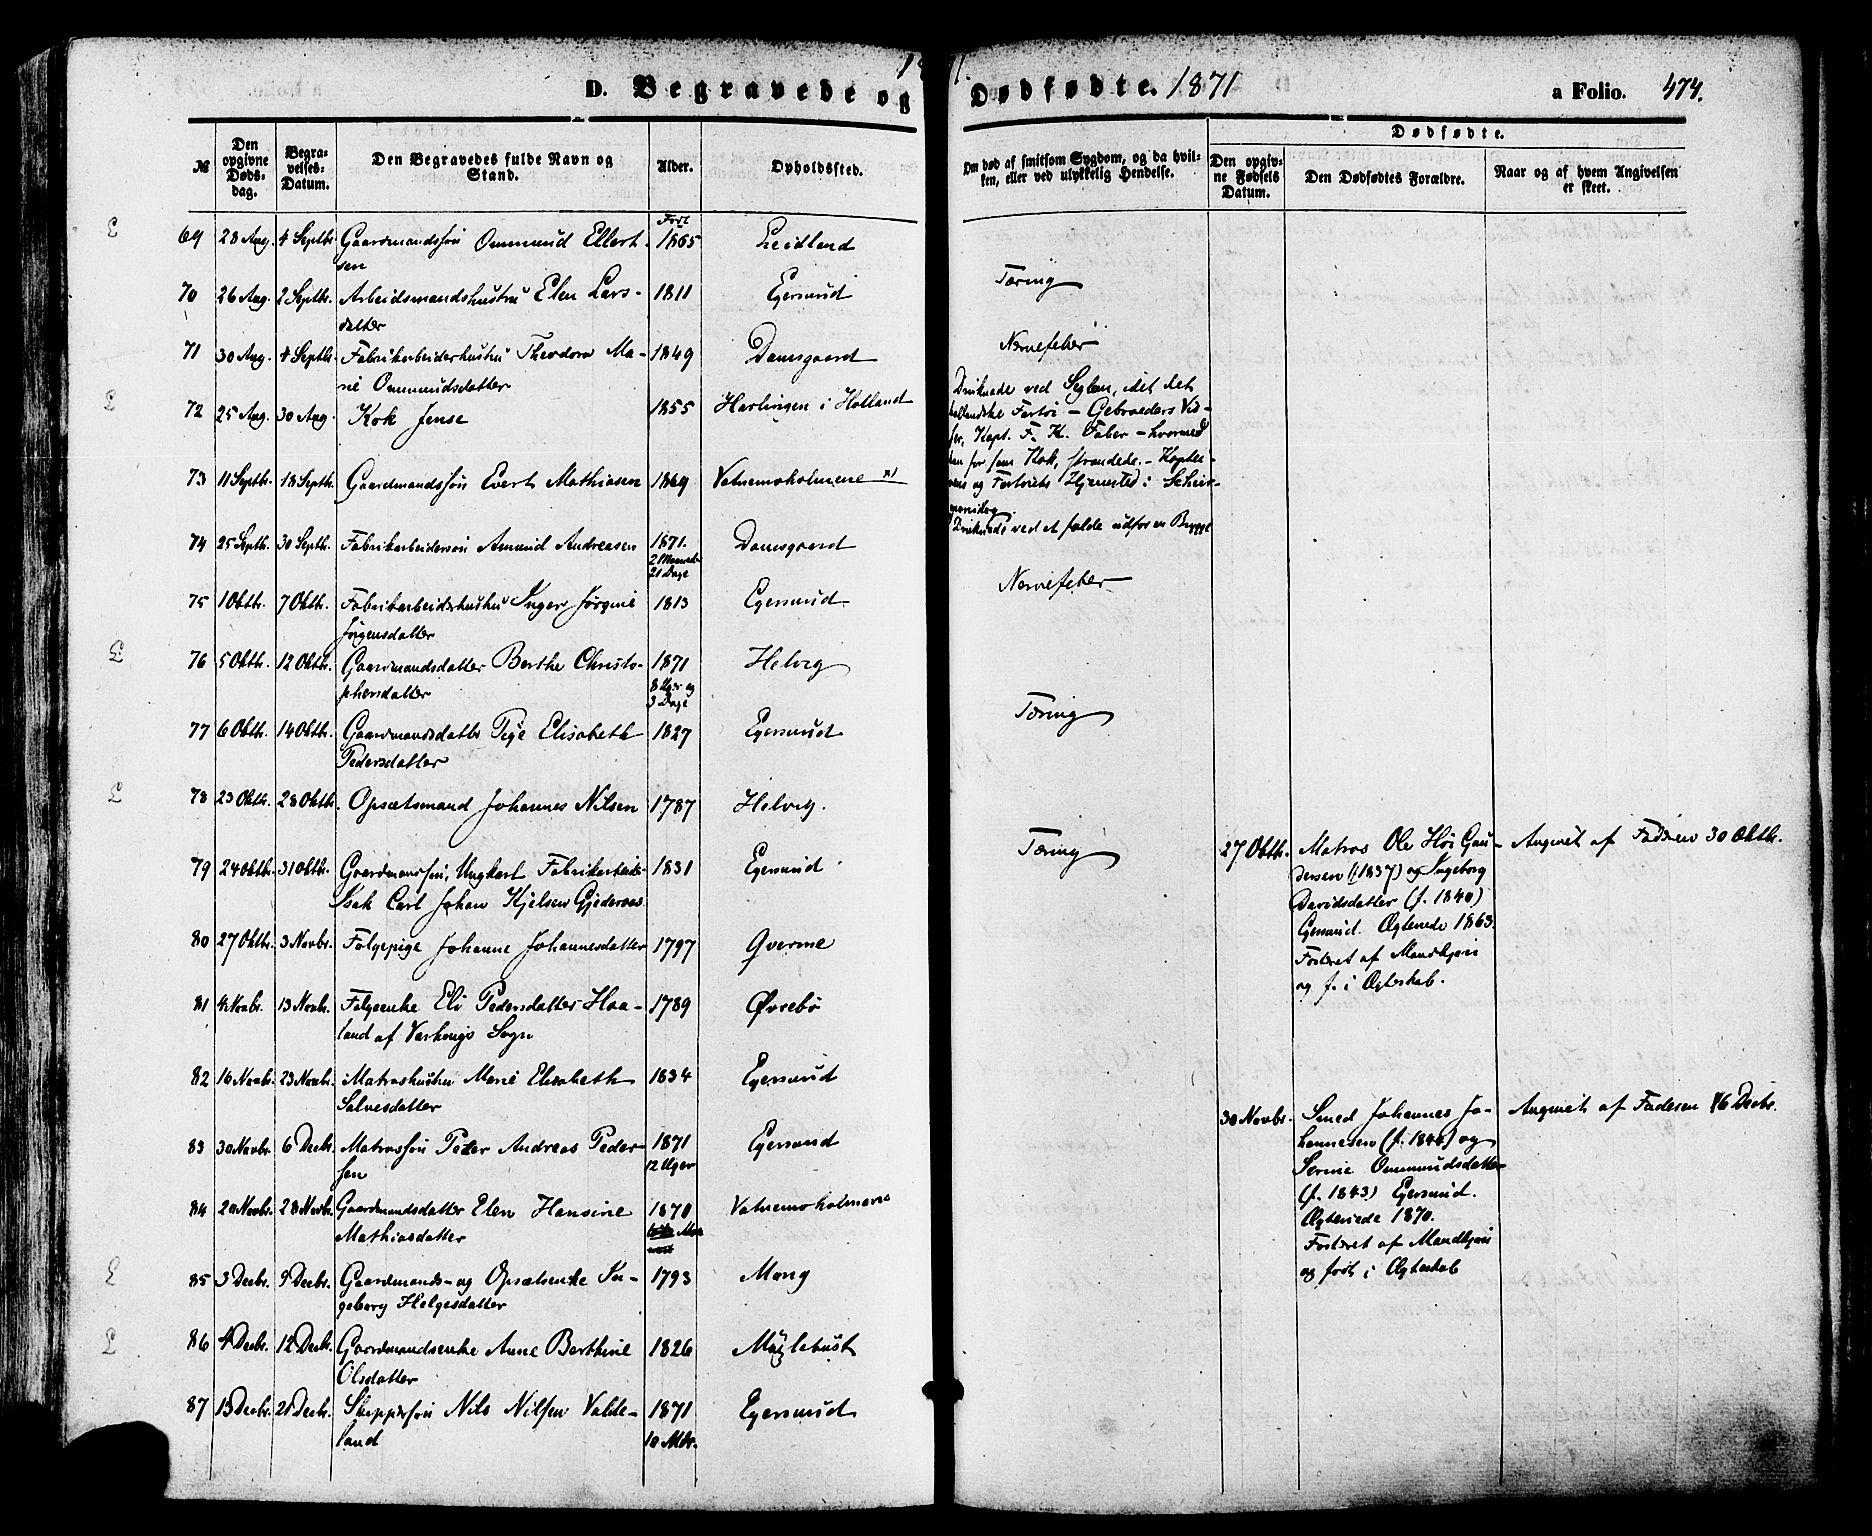 D. Begravede og Dødfødte. 1871
a Folio. 474.
№
Den opgivne Døds-dag.
Begra-velses-Datum.
Den Begravedes fulde Navn og Stand.
Alder.
Opholdssted.
Om død af smitsom Sygdom, og da hvil-
ken, eller ved ulykkelig Hendelse.
Dødfødte.
Den opgiv-
ne Fødsels
Datum.
Den Dødfødtes Forældre.
Naar og af hvem Angivelsen
er skeet.
69 28 Aug. 4 Septbr. Gaardmandssøn Ommund Ellert- Født 1865 Leidland
sen
70 26 Aug. 2 Septbr. Arbeidsmandshustru Elen Lars- 1811 Egersund Tæring
datter
71 30 Aug. 4 Septbr. Fabrikarbeiderhustru Theodora Ma- 1849 Damsgaard Nervefeber
rie Ommundsdatter
72 25 Aug. 30 Aug. Kok Jense 1855 Harlingen i Holland
Druknede ved Seglem, idet det
hollandske Fartøi - Gebroeders Vis-
ser, Kapt. F. K. Faber - hvormed
han for som Kok, strandede. - Kaptei-
nens og Fartøiets Hjemsted i Schier-
monikog
73 11 Septbr. 18 Septbr. Gaardmandssøn Evert Mathiasen 1869 Vatnemoholmene x)
Druknede ved at falde udfor en Brygge
74 25 Septbr. 30 Septbr. Fabrikarbeidersøn Amund Andreasen 1871. Damsgaard
2 Maaneder
21 Dage
75 1 Oktbr. 7 Oktbr. Fabrikarbeiderhustru Inger Jørgine 1813 Egersund Nervefeber
Jörgensdatter
76 5 Oktbr. 12 Oktbr. Gaardmandsdatter Berthe Christo- 1871 Helvig
phersdatter 8 Uger og
3 Dage
77 6 Oktbr. 14 Oktbr. Gaardmandsdatter Pige Elisabeth 1827 Egersund Tæring
Pedersdatter
78 23 Oktbr. 28 Oktbr. Opsætsmand Johannes Nilsen 1787 Helvig.
79 24 Oktbr. 31 Oktbr. Gaardmandssøn, Ungkarl Fabrikarbeider 1831 Egersund Tæring
Isak Carl Johan Kjelsen Gjedrem
80 27 Oktbr. 3 Novbr. Følgepige Johanne Johannesdatter 1797 Gverme
81 4 Novbr. 13 Novbr. Følgeenke Eli Pedersdatter Haa- 1789 Øvrebø
land af Varhougs Sogn
82 16 Novbr. 23 Novbr. Matroshustru Marie Elisabeth 1834 Egersund
Salvesdatter
83 30 Novbr. 6 Decbr. Matrossøn Peder Andreas Peder- 1871 Egersund
sen 12 Uger
84 20 Novbr. 28 Novbr. Gaardmandsdatter Elen Hansine 1870 Vatnemoholmene
Mathiasdatter
85 3 Decbr. 9 Decbr. Gaardmands- og Opsætsenke In- 1793 Mong
geborg Helgesdatter
86 4 Decbr. 12 Decbr. Gaardmandsenke Anne Berthine 1826 Myglebust
Olsdatter
87 13 Decbr. 21 Decbr. Skippersøn Nils Nilsen Valde- 1871 Egersund
land 10 Mdr.
27 Oktbr. Matros Ole Höi Gun- Angivet af Faderen 30 Oktbr.
dersen (f 1837) og Ingeborg
Davidsdatter (f. 1840)
Egersund. Ægteviede 1863.
Fosteret af Mandkjøn
og f. i Ægteskab.
30 Novbr. Smed Johannes Jo- Angivet af Faderen 16 Decbr.
hannesen (f. 1846) og
Serine Ommundsdatter
(f. 1843) Egersund.
Ægteviede 1870.
Fosteret af Mandkjøn
og født i Ægteskab